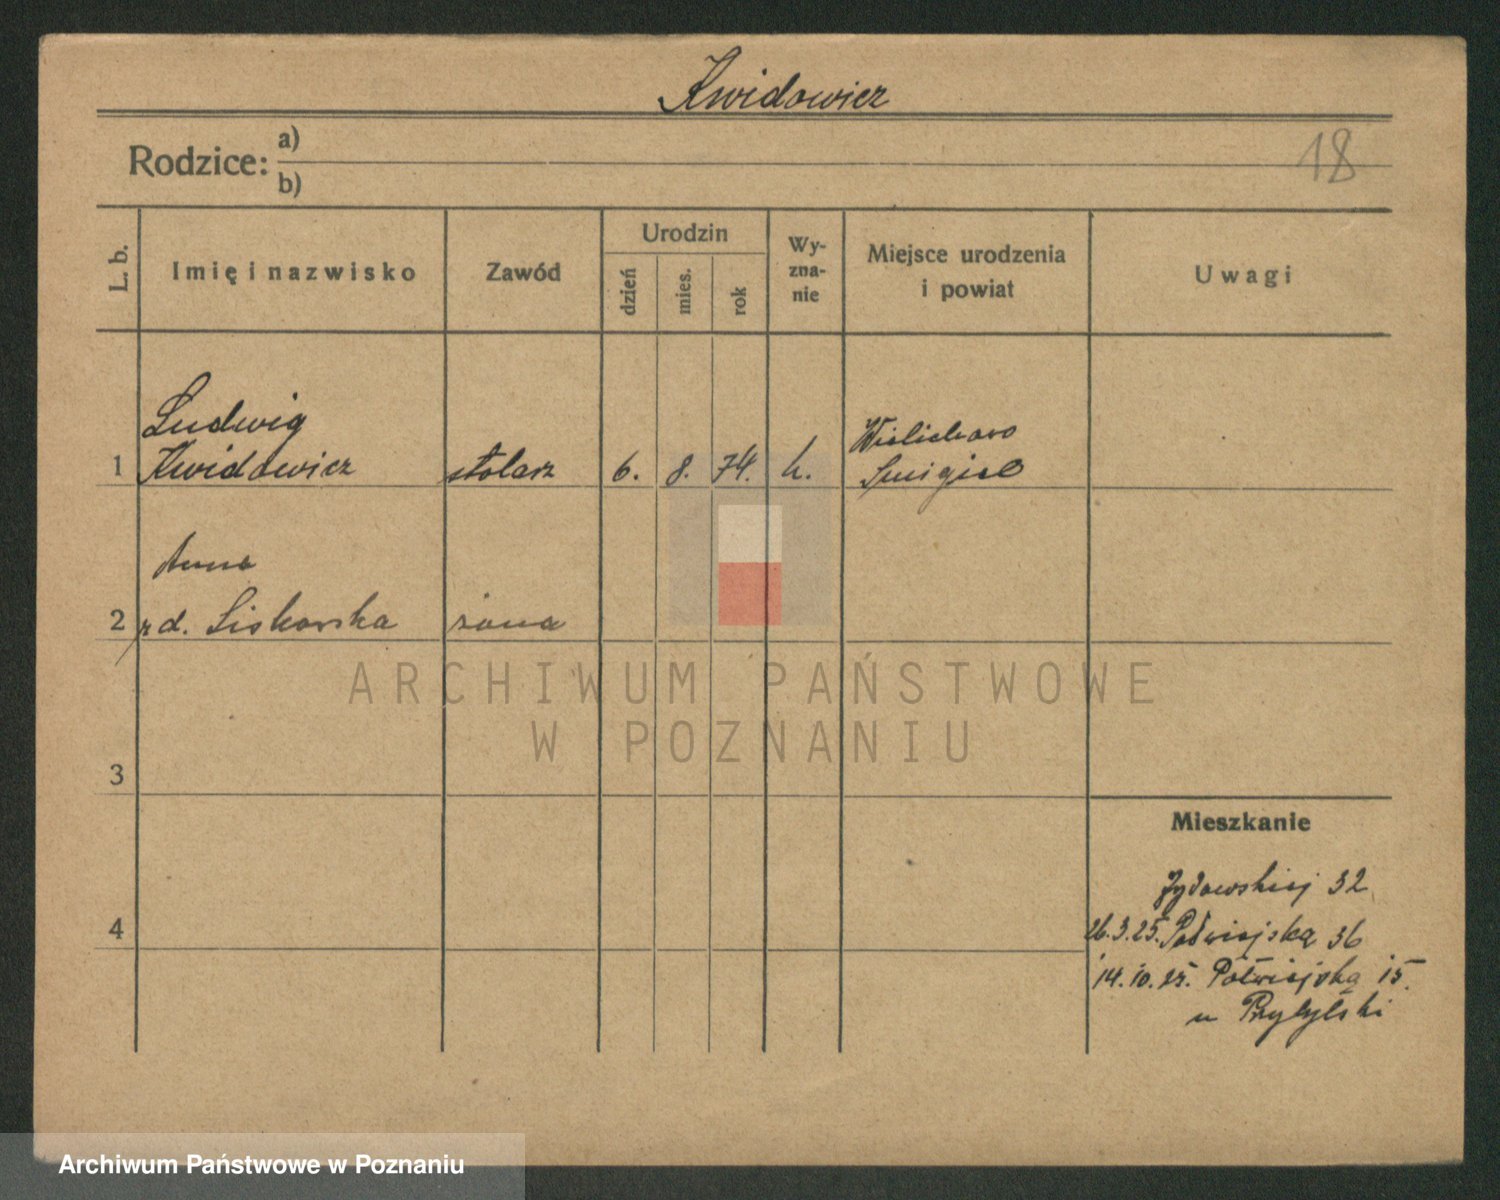 Kwidowicz
Rodzice: a)
b)
18
L. b.
Imię i nazwisko
Zawód
Urodzin
dzień
mies.
rok
Wy-
zna-
nie
Miejsce urodzenia
i powiat
Uwagi
Ludwig
1 Kwidowicz stolarz 6. 8. 74. k.
Wielichowo
Smigiel
Anna
2 rd. Liskowska żona
3
4
ARCHIWUM PAŃSTWOWE
W POZNANIU
Mieszkanie
Żydowskiej 32
26.3.25. Półwiejską 36
14.10.25. Półwiejską 15.
u Przybylski
Archiwum Państwowe w Poznaniu